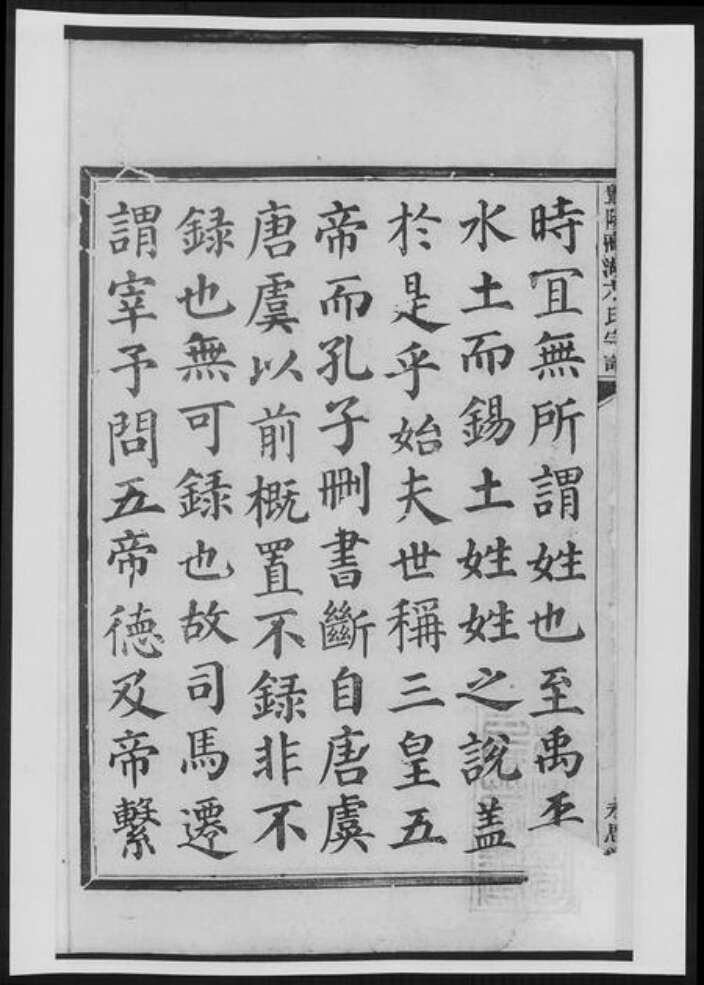 時宜無所謂姓也至禹平
水土而錫土姓姓之說蓋
於是乎始夫世稱三皇五
帝而孔子刪書斷自唐虞
唐虞以前概置不録非不
録也無可録也故司馬遷
謂宰予問五帝德及帝繫